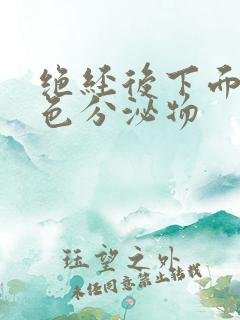 绝经後下面
色分泌物
珏望之外
未经同意禁止转载